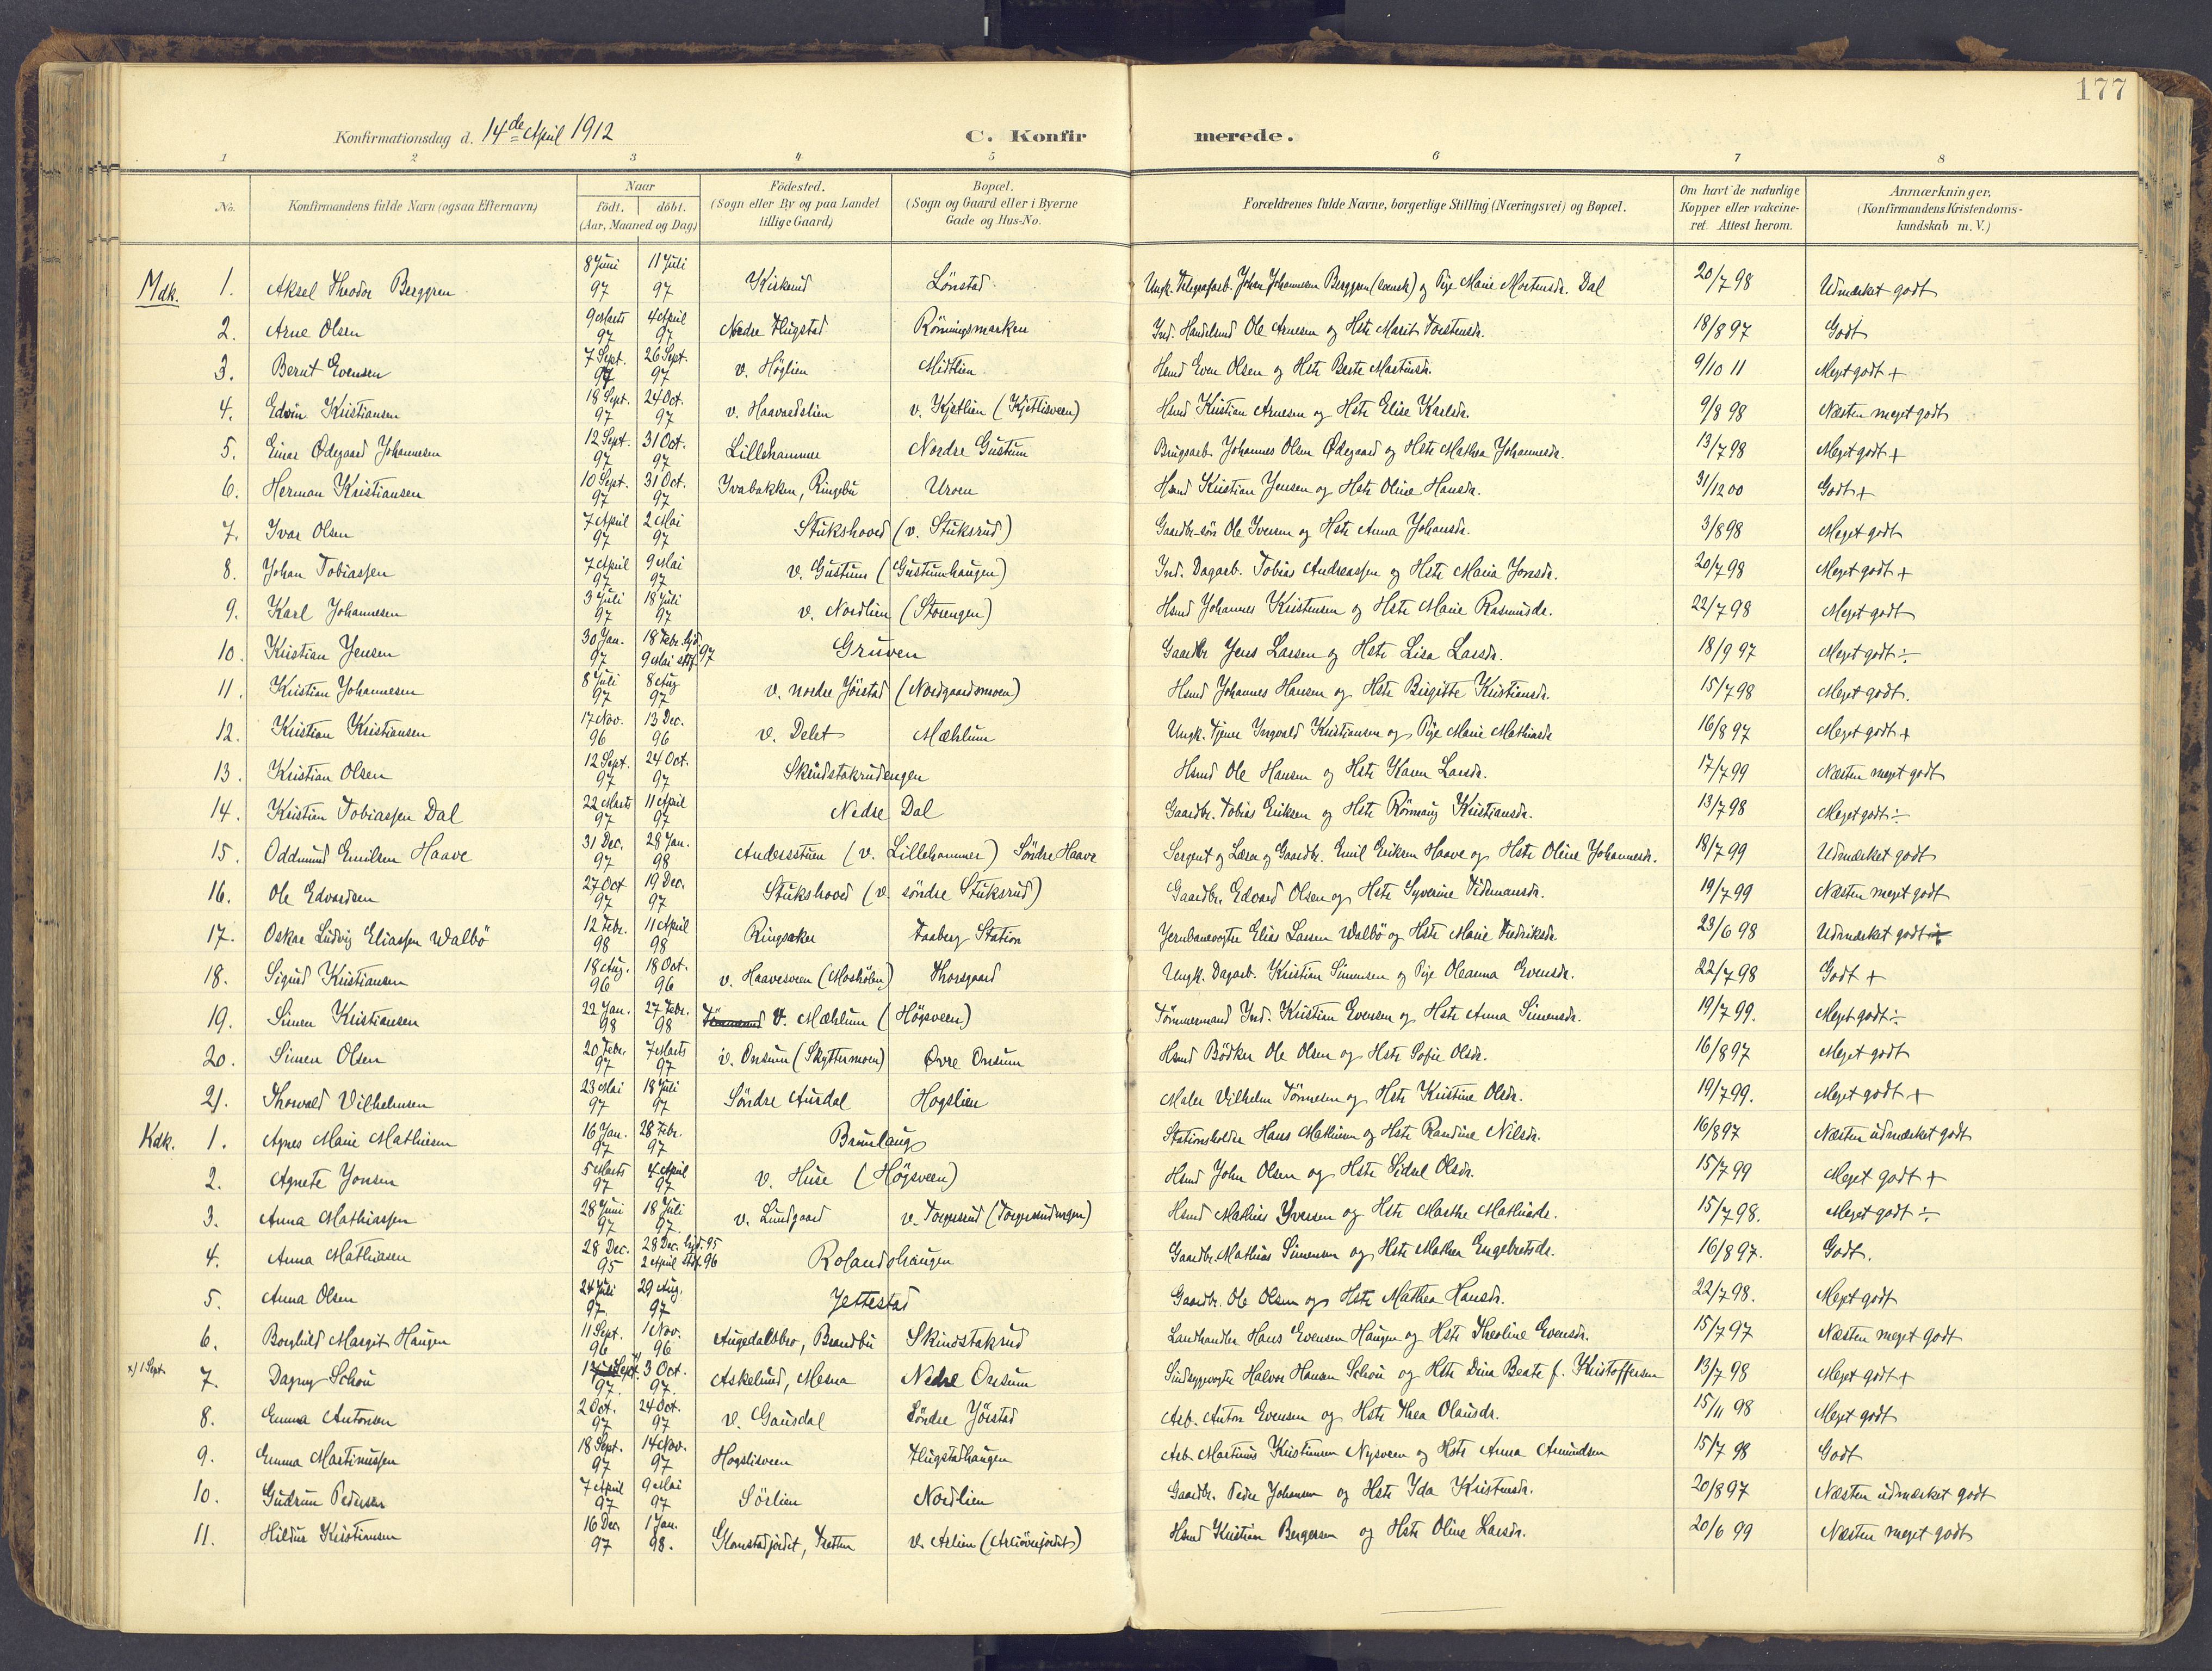 177
Konfirmationsdag d. 14de April 1912
C. Konfirmerede.
1 2 3 4 5 6 7 8
No. Konfirmandens fulde Navn (ogsaa Efternavn) Naar födt. döbt. (Aar, Maaned og Dag) Födested. (Sogn eller By og paa Landet tillige Gaard) Bopæl. (Sogn og Gaard eller i Byerne Gade og Hus-No. Forældrenes fulde Navne, borgerlige Stilling (Næringsvei) og Bopæl. Om havt de naturlige Kopper eller vakcineret. Attest herom. Anmærkninger. (Konfirmandens Kristendomskundskab m. V.)
Mdk. 1. Aksel Theodor Berggren 8 Juni 97 11 Juli 97 Kirkerud Lönstad Ungk. Telegrafarb. Johan Johannesen Berggren (svensk) og Pige Marie Mortensdr. Dal 20/7 98 Udmærket godt
2. Arne Olsen 9 Marts 97 4 April 97 Nedre Flugstad Rönningsmarken Ind. Handelsmd Ole Arnesen og Hstr Marit Torstensdr. 18/8 97 Godt
3. Bernt Evensen 7 Sept. 97 26 Sept. 97 v. Höglien Midtlien Hsmd Even Olsen og Hstr Berte Martinsdr. 9/10 11 Meget godt +
4. Edvin Kristiansen 18 Sept. 97 24 Oct. 97 v. Haavardslien v. Kjetlien (Kjetlisveen) Hsmd Kristian Arnesen og Hstr Elise Karlsdr. 9/8 98 Næsten meget godt
5. Einar Ödegaard Johannesen 12 Sept. 97 31 Oct. 97 Lillehammer Nordre Gustum Brugsarb. Johannes Olsen Ödegaard og Hstr Mathea Johannesdr. 13/7 98 Meget godt +
6. Herman Kristiansen 10 Sept. 97 31 Oct. 97 Ivabakken, Ringebu Uroen Hsmd Kristian Jensen og Hstr Oline Hansdr. 31/12 00 Godt +
7. Ivar Olsen 7 April 97 2 Mai 97 Stukshoved (v. Stuksrud) Gaardbr.sön Ole Iversen og Hstr Anna Johansdr. 3/8 98 Meget godt
8. Johan Tobiassen 7 April 97 9 Mai 97 v. Gustum (Gustumhaugen) Ind. Dagarb. Tobias Andreassen og Hstr Maria Jonsdr. 20/7 98 Meget godt +
9. Karl Johannesen 3 Juli 97 18 Juli 97 v. Nordlien (Storengen) Hsmd Johannes Kristensen og Hstr Marie Rasmusdr. 22/7 98 Meget godt
10. Kristian Jensen 30 Jan. 97 18 Febr. hjd. 9 Mai stdf. 97 Gruven Gaardbr Jens Larsen og Hstr Lisa Larsdr. 18/9 97 Meget godt ÷
11. Kristian Johannesen 8 Juli 97 8 Aug 97 v. nordre Jörstad (Nordgaardsmoen) Hsmd Johannes Hansen og Hstr Birgitte Kristiansdr. 15/7 98 Meget godt.
12. Kristian Kristiansen 17 Nov. 96 13 Dec. 96 v. Delet Mæhlum Ungk. Tjener Ingvald Kristiansen og Pige Marie Mathiasdr 16/8 97 Meget godt +
13. Kristian Olsen 12 Sept. 97 24 Oct. 97 Skindstakrudengen Hsmd Ole Hansen og Hstr Karen Larsdr. 17/7 99 Næsten meget godt
14. Kristian Tobiassen Dal 22 Marts 97 11 April 97 Nedre Dal Gaardbr. Tobias Eriksen og Hstr Rönnaug Kristiansdr. 13/7 98 Meget godt ÷
15. Oddmund Emilsen Haave 31 Dec. 97 28 Jan. 98 Andersstuen (v. Lillehammer) Söndre Haave Sergent og Lærer og Gaardbr. Emil Eriksen Haave og Hstr Oline Johannesdr. 18/7 99 Udmærket godt
16. Ole Edvardsen 27 Oct 97 19 Dec. 97 Stukshoved (v. söndre Stuksrud) Gaardbr. Edvard Olsen og Hstr Syverine Tidemansdr. 19/7 99 Næsten meget godt
17. Oskar Ludvig Eliassen Walbö 12 Febr. 98 11 April 98 Ringsaker Faaberg Station Jernbanevogter Elias Larsen Walbö og Hstr Marie Fredriksdr. 23/6 98 Udmærket godt
18. Sigurd Kristiansen 18 Aug. 96 18 Oct. 96 v. Haavesveen (Mosholen) Thorsgaard Ungk. Dagarb. Kristian Simensen og Pige Oleanna Evensdr. 22/7 98 Godt +
19. Simen Kristiansen 22 Jan. 98 27 Febr. 98 v. Mæhlum (Högsveen) Tömmermand Ind. Kristian Evensen og Hstr Anna Simensdr. 19/7 99. Meget godt ÷
20. Simen Olsen 20 Febr. 97 7 Marts 97 v. Onsum (Skyttermoen) Övre Onsum Hsmd Bödker Ole Olsen og Hstr Sofie Olsdr. 16/8 97 Meget godt
21. Thorvald Vilhelmsen 23 Mai 97 18 Juli 97 Söndre Aurdal Hogslien Maler Vilhelm Tönnesen og Hstr Kristine Olsdr. 19/7 99. Meget godt +
Kdk. 1. Agnes Marie Mathiesen 16 Jan. 97 28 Febr. 97 Brunlaug Stationsholder Hans Mathiesen og Hstr Randine Nilsdr. 16/8 97 Næsten udmærket godt
2. Agnete Jonsen 5 Marts 97 4 April 97 v. Huse (Högsveen) Hsmd John Olsen og Hstr Sidsel Olsdr. 15/7 99 Meget godt +
3. Anna Mathiassen 28 Juni 97 18 Juli 97 v. Lundgaard v. Torpesrud (Torpesrudengen) Hsmd Mathias Iversen og Hstr Marthe Mathiasdr. 15/7 98. Meget godt ÷
4. Anna Mathiasen 28 Dec. 95 28 Dec. hjd. 95 2 April stdf. 96 Rolandshaugen Gaardbr. Mathias Simensen og Hstr Mathea Engebretsdr. 16/8 97. Godt.
5. Anna Olsen 24 Juli 97 29 Aug. 97 Jettestad Gaardbr. Ole Olsen og Hstr Mathea Hansdr. 22/7 98. Meget godt
6. Borghild Margit Haugen 11 Sept. 96 1 Nov. 96 Augedalsbro, Brandbu Skindstakrud Landhandler Hans Evensen Haugen og Hstr Theoline Evensdr. 15/7 97 Næsten meget godt
x) 1 Sept. 7. Dagny Schou 97 3 Oct. 97 Askelund, Mesna Nedre Onsum Sindssygevogter Halvor Hansen Schou og Hstr Dina Beate f. Kristoffersen 13/7 98 Meget godt +
8. Emma Antonsen 2 Oct. 97 24 Oct. 97 v. Gausdal Söndre Jörstad Arb. Anton Evensen og Hstr Thea Olausdr. 15/11 98 Meget godt
9. Emma Martinussen 18 Sept. 97 14 Nov. 97 Hogslisveen Flugstadhaugen Arb. Martinus Kristiansen Nysveen og Hstr Anna Amundsen 15/7 98 Godt
10. Gudrun Pedersen 7 April 97 9 Mai 97 Sörlien Nordlien Gaardbr. Peder Johansen og Hstr Ida Kristensdr. 20/8 97 Næsten udmærket godt
11. Hildur Kristiansen 16 Dec. 97 1 Jan. 98. Glomstadjordet, Tretten v. Arlien Hsmd Kristian Bergersen og Hstr Oline Larsdr. 20/6 99 Næsten meget godt